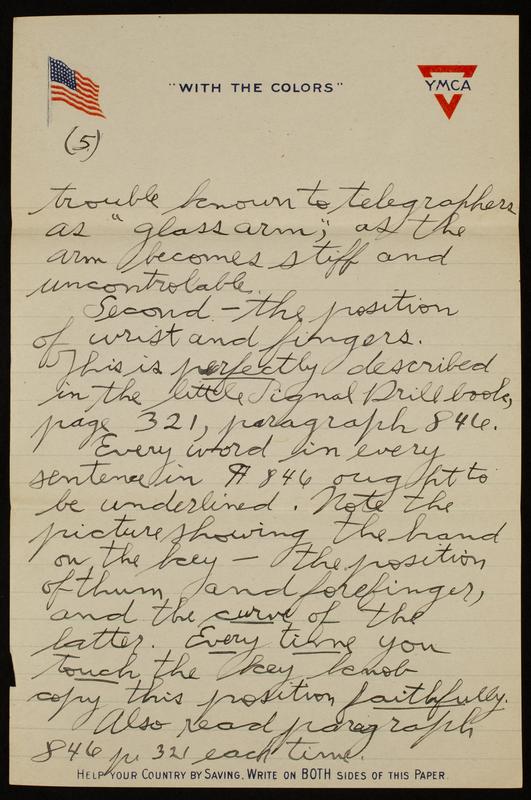 "WITH THE COLORS"
YMCA
(5)
trouble known to telegraphers
as "glass arm", as the
arm becomes stiff and
uncontrolable.
Second - the position
of wrist and fingers.
This is perfectly described
in the little Signal Drill book,
page 321, paragraph 846.
Every word in every
sentence in ¶ 846 ought to
be underlined. Note the
picture showing the hand
on the key - the position
of thum and forefinger,
and the curve of the
latter. Every time you
touch the key knob
copy this position faithfully.
Also read paragraph
846 p. 321 each time.
HELP YOUR COUNTRY BY SAVING. WRITE ON BOTH SIDES OF THIS PAPER